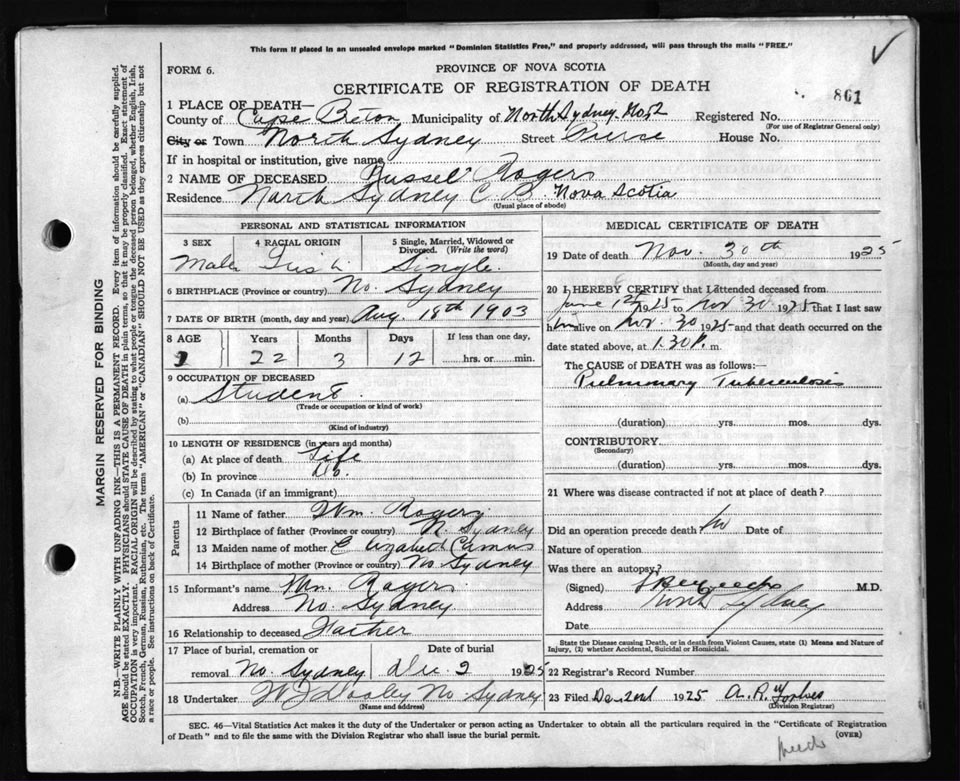 This form if placed in an unsealed envelope marked "Dominion Statistics Free," and properly addressed, will pass through the mails "FREE."
FORM 6.
PROVINCE OF NOVA SCOTIA
CERTIFICATE OF REGISTRATION OF DEATH
861
1 PLACE OF DEATH—
County of Cape Breton Municipality of North Sydney No 2 Registered No.
(For use of Registrar General only)
City or Town North Sydney Street Pierce House No.
If in hospital or institution, give name
2 NAME OF DECEASED Russel Rogers
Residence North Sydney C B Nova Scotia
(Usual place of abode)
PERSONAL AND STATISTICAL INFORMATION
3 SEX 4 RACIAL ORIGIN 5 Single, Married, Widowed or Divorced. (Write the word)
Male Irish Single
6 BIRTHPLACE (Province or country) No. Sydney
7 DATE OF BIRTH (month, day and year) Aug 18th 1903
8 AGE Years Months Days If less than one day,
22 3 12 hrs. or min.
9 OCCUPATION OF DECEASED
(a) Student
(Trade or occupation or kind of work)
(b)
(Kind of industry)
10 LENGTH OF RESIDENCE (in years and months)
(a) At place of death Life
(b) In province Do.
(c) In Canada (if an immigrant)
Parents
11 Name of father Wm. Rogers
12 Birthplace of father (Province or country) N. Sydney
13 Maiden name of mother Elizabeth
14 Birthplace of mother (Province or country) No Sydney
15 Informant's name Wm. Rogers
Address No. Sydney
16 Relationship to deceased Father
17 Place of burial, cremation or removal No. Sydney Date of burial Dec 2 1925
18 Undertaker W J Dooley No Sydney
(Name and address)
MEDICAL CERTIFICATE OF DEATH
19 Date of death Nov. 30th 1925
(Month, day and year)
20 I HEREBY CERTIFY that I attended deceased from
June 1925 to Nov 30 1925 that I last saw
him alive on Nov. 30 1925 and that death occurred on the
date stated above, at 1.30 P. m.
The CAUSE OF DEATH was as follows:
Pulmonary Tuberculosis
(duration) yrs. mos. dys.
CONTRIBUTORY
(Secondary)
(duration) yrs. mos. dys.
21 Where was disease contracted if not at place of death?
Did an operation precede death? No Date of
Nature of operation
Was there an autopsy?
(Signed) M.D.
Address North Sydney
Date
State the Disease causing Death, or in death from Violent Causes, state (1) Means and Nature of Injury, (2) whether Accidental, Suicidal or Homicidal.
22 Registrar's Record Number
23 Filed Dec 2nd 1925 A. R. Forbes
(Division Registrar)
SEC. 46—Vital Statistics Act makes it the duty of the Undertaker or person acting as Undertaker to obtain all the particulars required in the "Certificate of Registration
of Death" and to file the same with the Division Registrar who shall issue the burial permit.
(OVER)
MARGIN RESERVED FOR BINDING
N.B.—WRITE PLAINLY WITH UNFADING INK—THIS IS A PERMANENT RECORD. Every item of information should be carefully supplied.
AGE should be stated EXACTLY. PHYSICIANS should STATE CAUSE OF DEATH in plain terms, so that it may be properly classified. Exact statement of
OCCUPATION is very important. RACIAL ORIGIN will be described by stating to what people or tongue the deceased person belonged, whether English, Irish,
Scotch, French, German, Russian, Ruthenian, etc. The terms "AMERICAN" or "CANADIAN" SHOULD NOT BE USED as they express citizenship but not
a race or people. See instructions on back of Certificate.